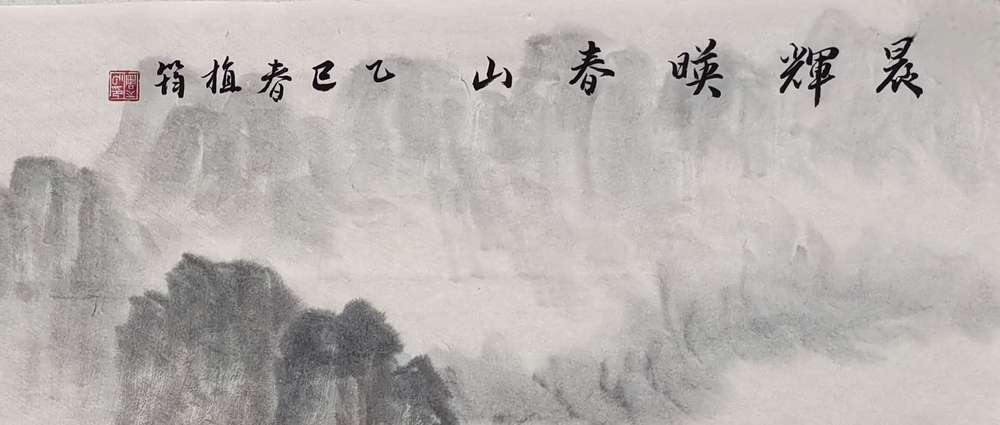 晨輝暎春山 乙巳春植筠